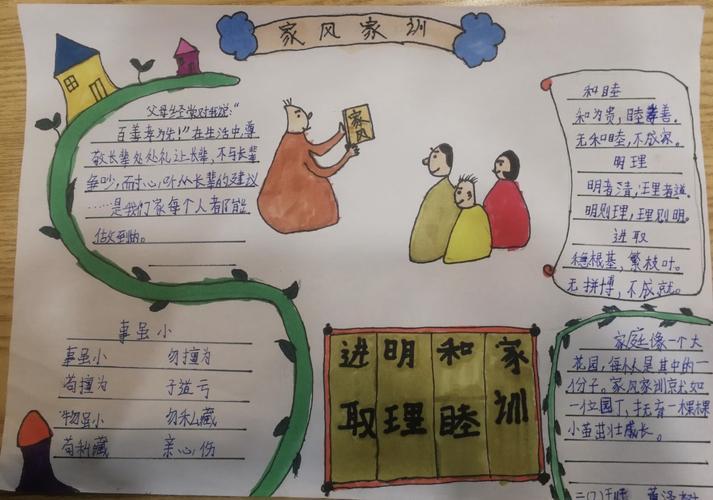 家风家训
父母经常对我说:“
百善孝为先!”在生活中,尊
敬长辈处处礼让长辈,不与长辈
争吵,耐心听从长辈的建议
……是我们家每个人都能
做到的。
家风
和睦
和为贵,睦为善。
无和睦,不成家。
明理
明者清,理者道。
明则理,理则明。
进取
稳根基,繁枝叶。
无拼博,不成就。
事虽小
事虽小 勿擅为
苟擅为 子道亏
物虽小 勿私藏
苟私藏 亲心伤
家训
和睦
明理
进取
家庭像一个大
花园,每个人是其中的一
份子。家风家训就如
一位园丁,抚育一棵棵
小苗茁壮成长。
二(7)班